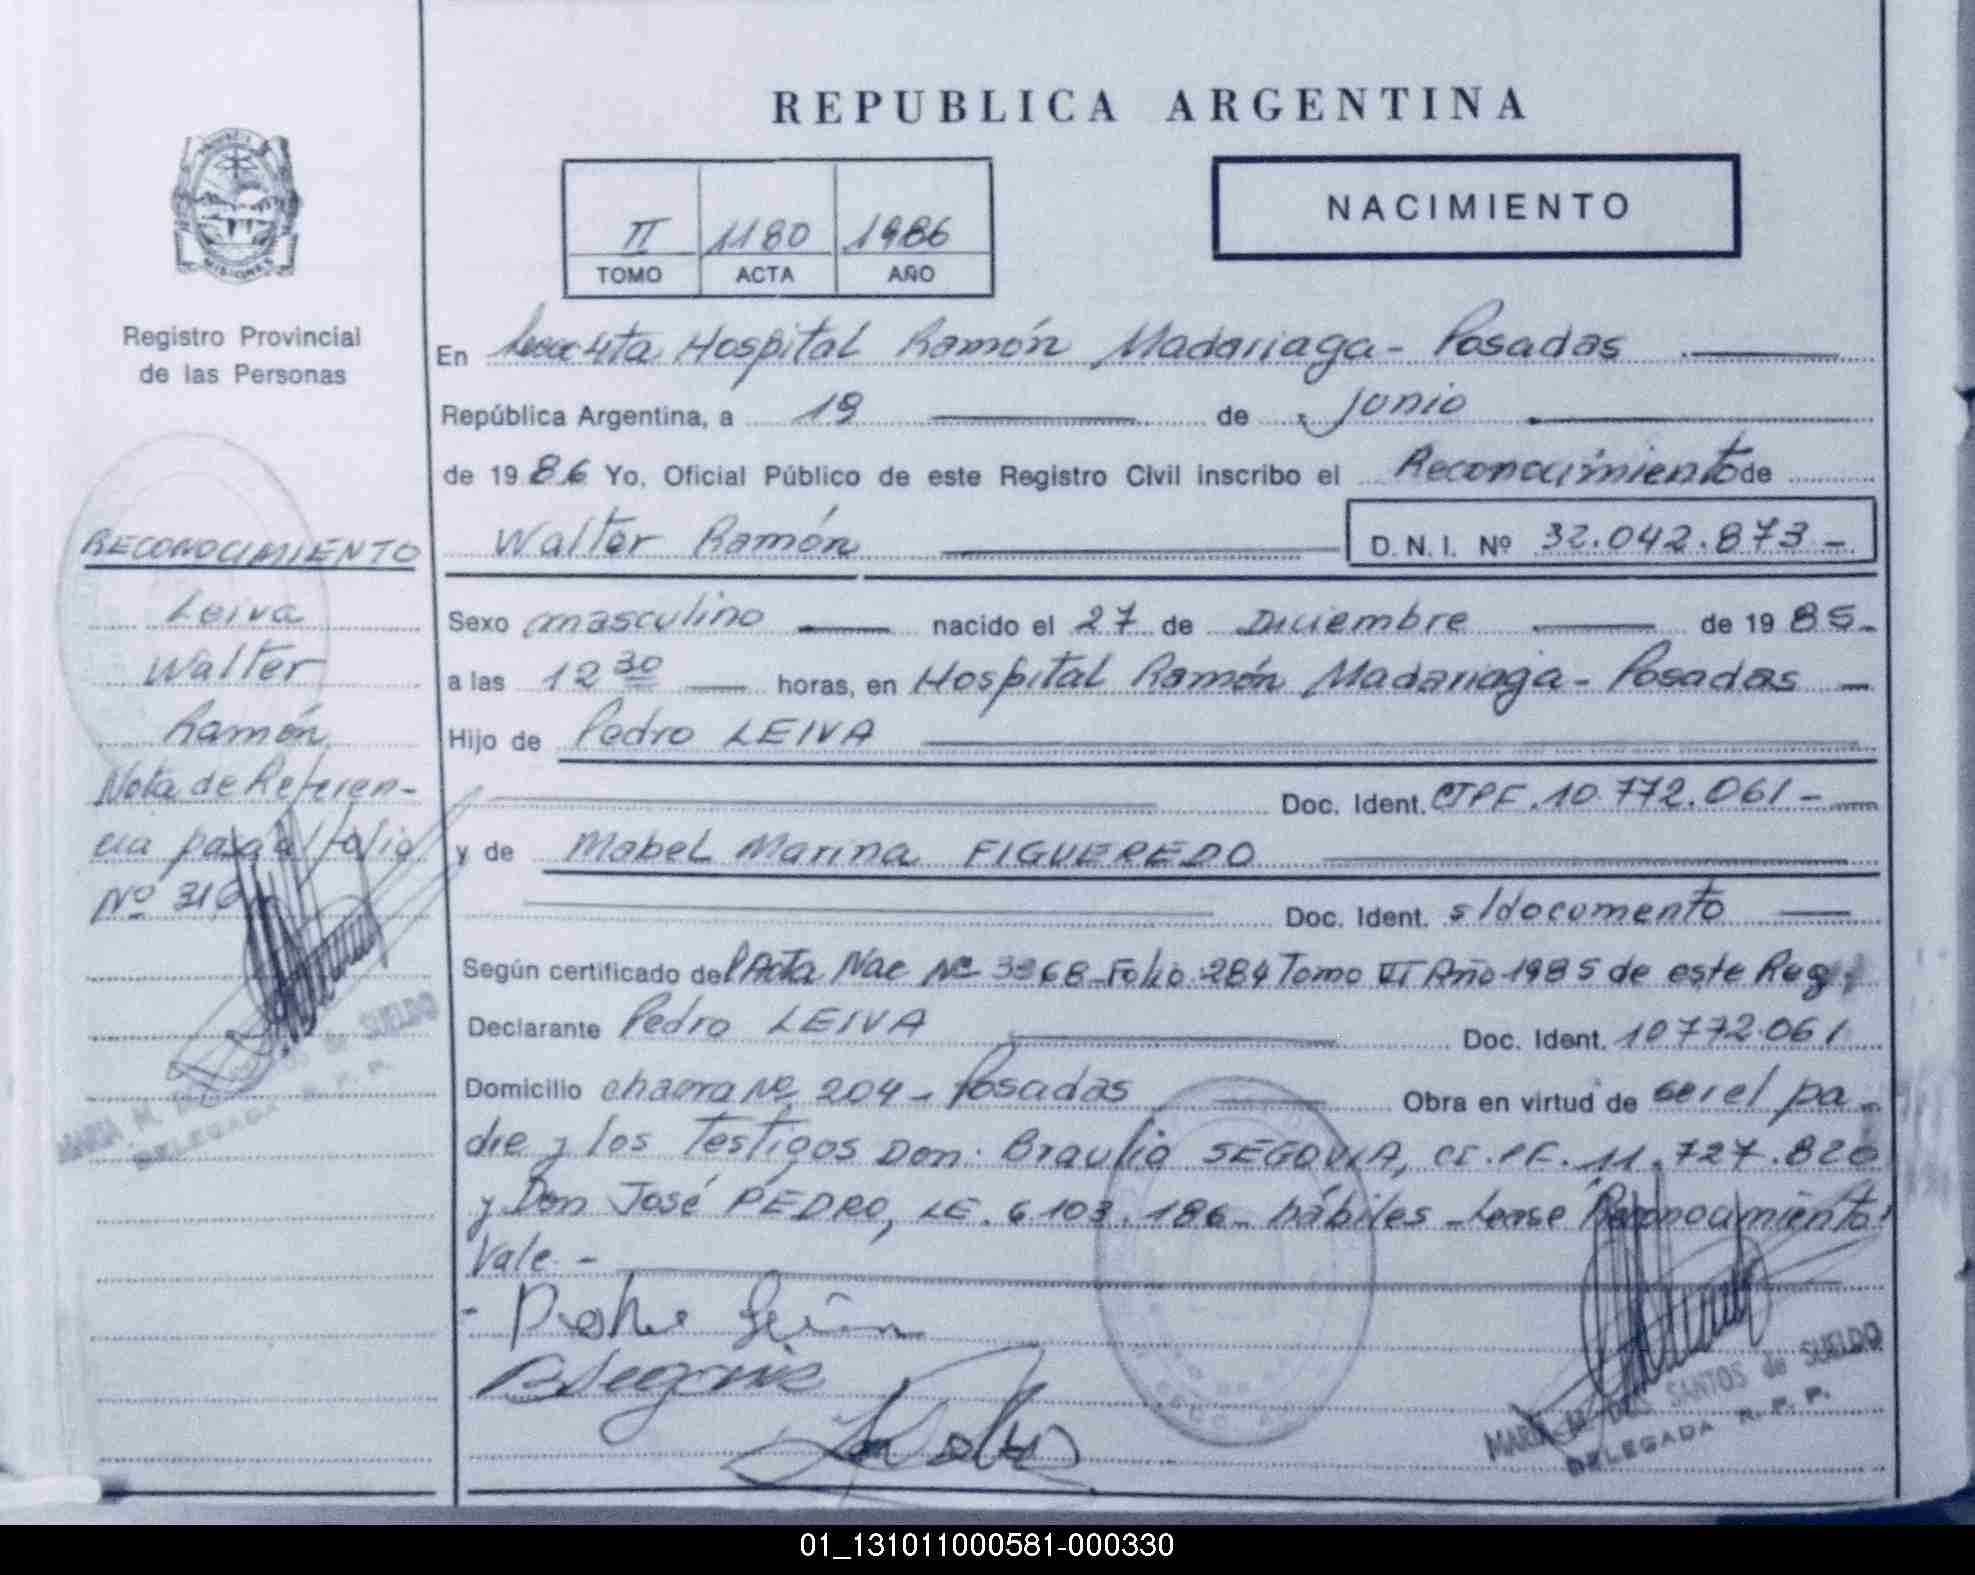 REPUBLICA ARGENTINA
II 1180 1986
TOMO ACTA AÑO
NACIMIENTO
MISIONES
Registro Provincial
de las Personas
RECONOCIMIENTO
Leiva
Walter
Ramón
Nota de Referen-
cia pasa al folio
Nº
MARIA M. de SUELDO
DELEGADA R. P. P.
En 4ta Hospital Ramón Madariaga - Posadas
República Argentina, a 19 de Junio
de 1986 Yo, Oficial Público de este Registro Civil inscribo el Reconocimiento de
Walter Ramón D. N. I. Nº 32.042.873-
Sexo masculino nacido el 27 de Diciembre de 1985-
a las 12 30 horas, en Hospital Ramón Madariaga - Posadas -
Hijo de Pedro LEIVA
Doc. Ident. CIPF. 10.772.061-
y de Mabel Marina FIGUEREDO
Doc. Ident. s/documento
Según certificado del Acta Nac Nº 3968-Folio 284 Tomo VI Año 1985 de este Reg.
Declarante Pedro LEIVA Doc. Ident. 10772.061
Domicilio chacra Nº 204 - Posadas Obra en virtud de ser el pa-
dre y los Testigos Don: Braulio SEGOVIA, CI.PF. 11.727.820
y Don José PEDRO, LE. 6103.186- hábiles - Lease Reconocimiento:
Vale. -
- Pedro Leiva
BSegovia
MARIA M. DOS SANTOS de SUELDO
DELEGADA R. P. P.
01_131011000581-000330